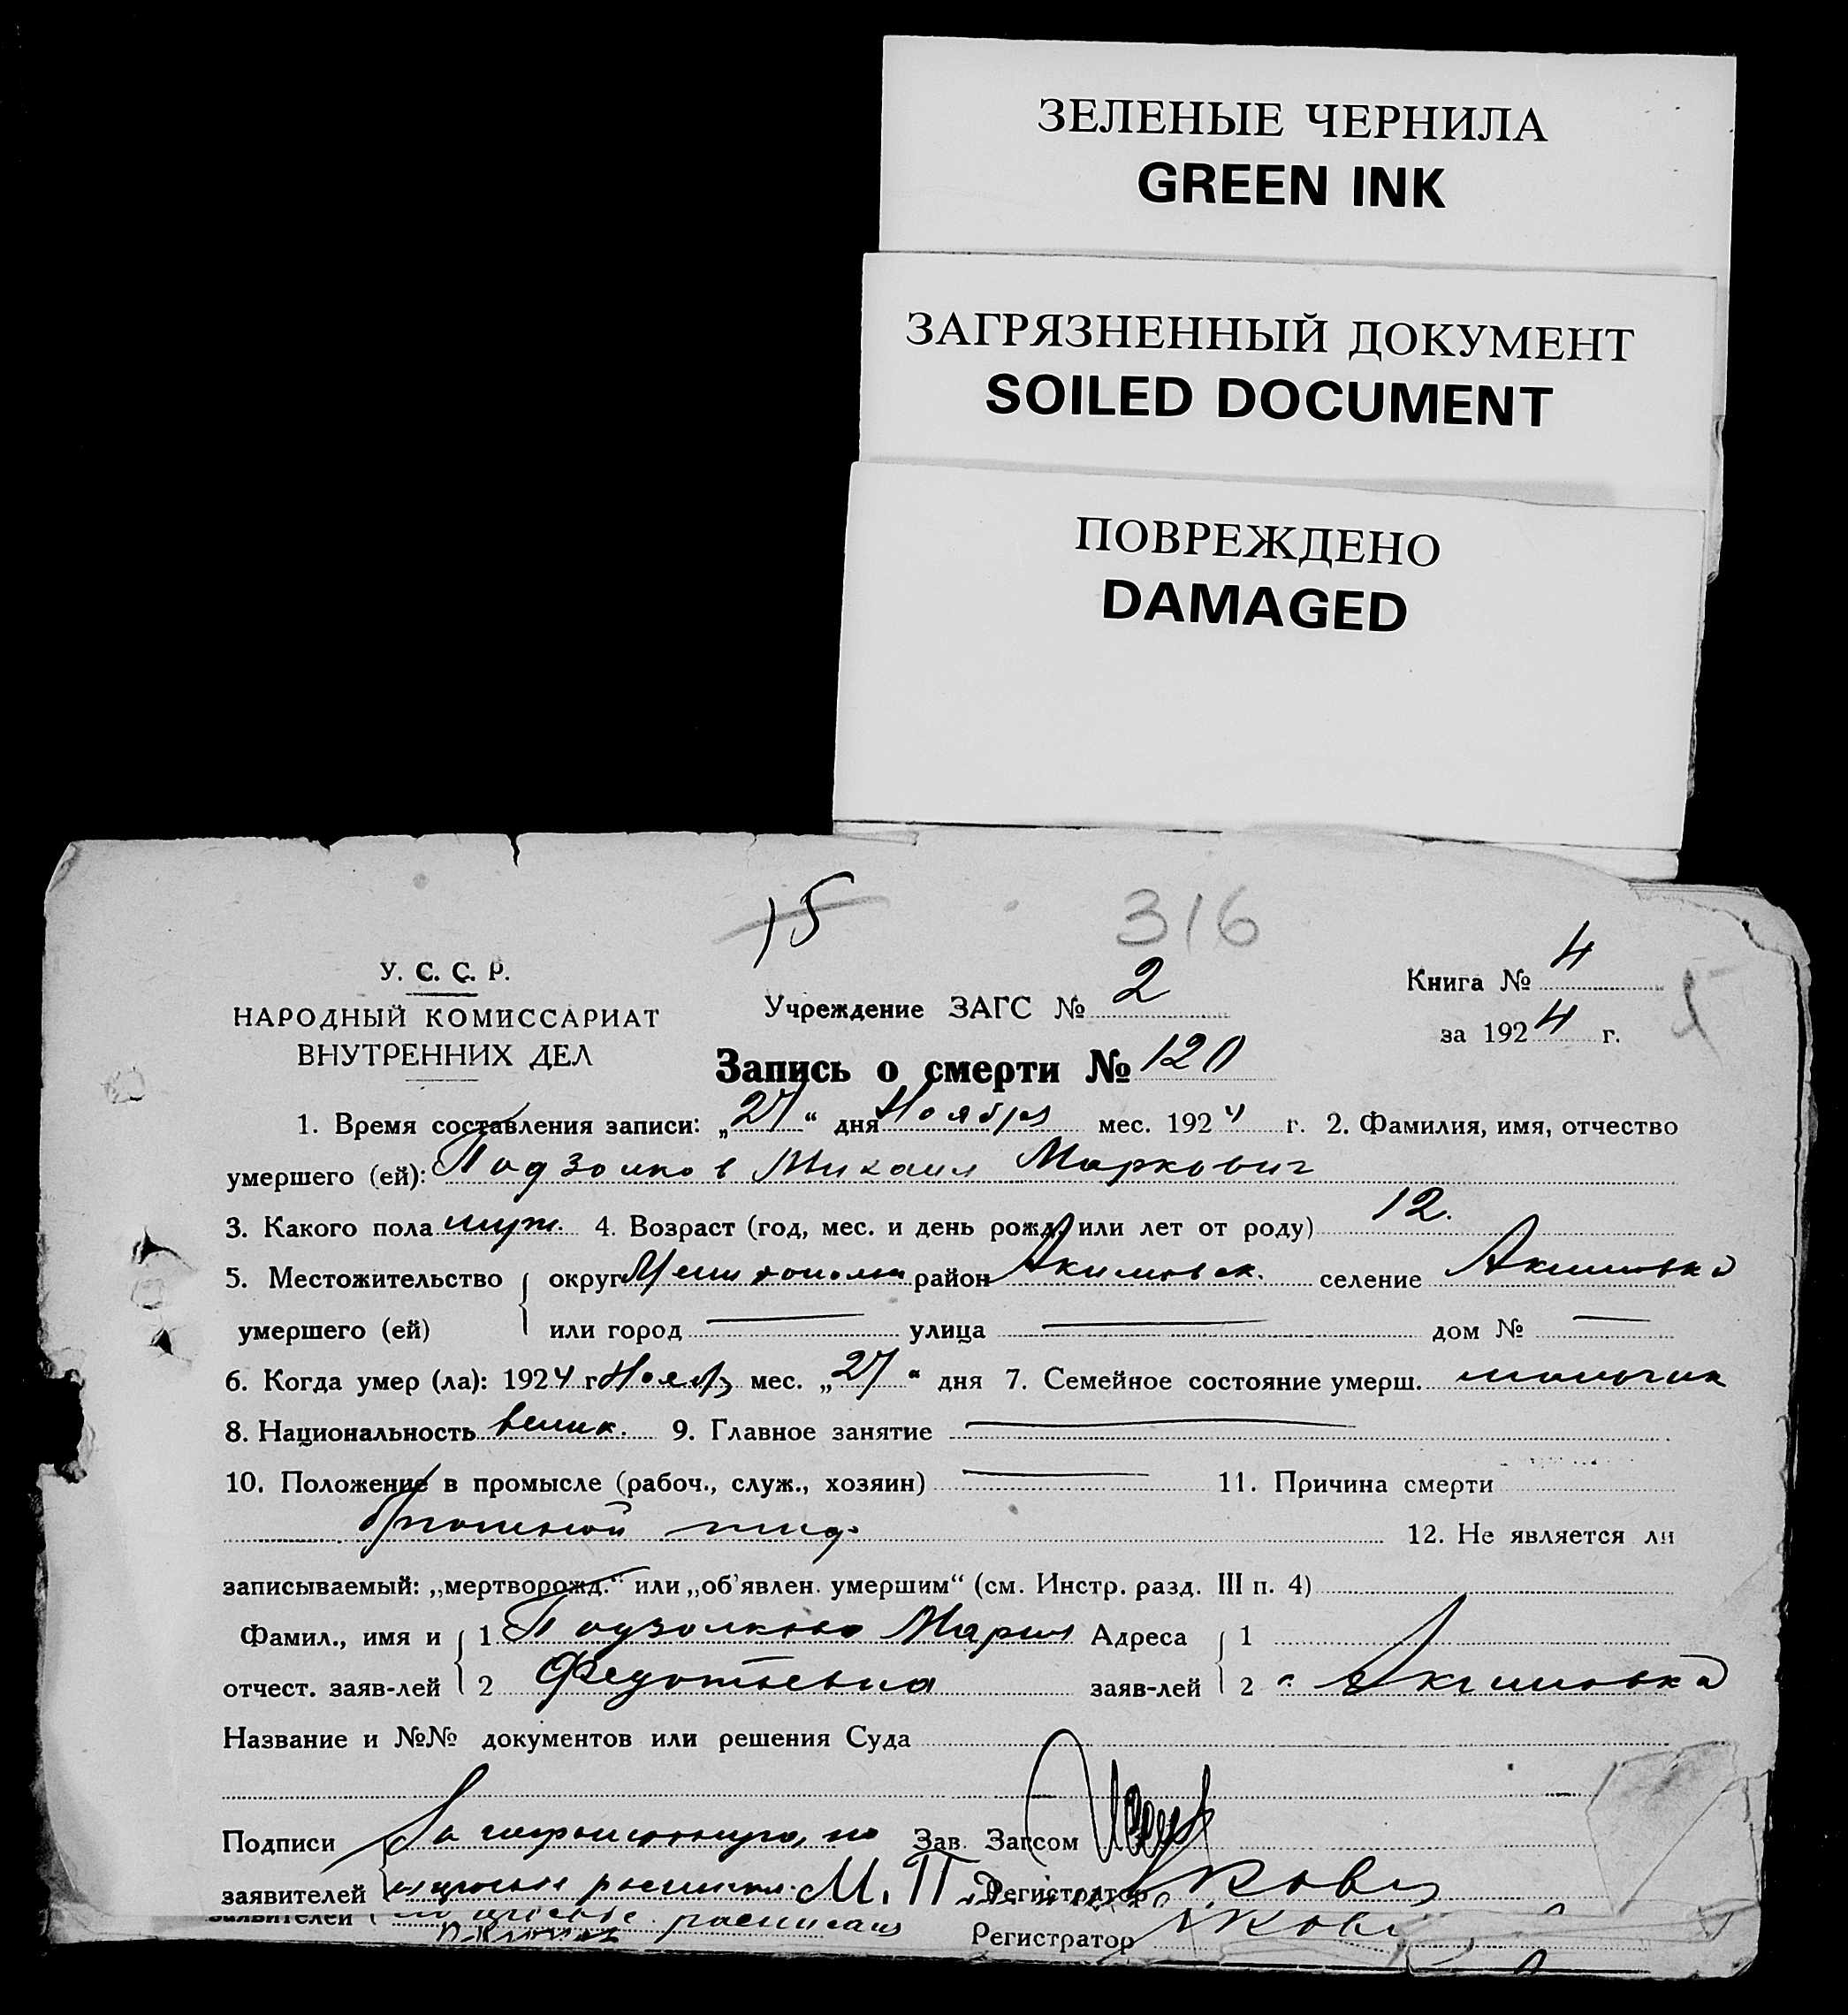 ЗЕЛЕНЫЕ ЧЕРНИЛА
GREEN INK
ЗАГРЯЗНЕННЫЙ ДОКУМЕНТ
SOILED DOCUMENT
ПОВРЕЖДЕНО
DAMAGED
15 316
У. С. С. Р.
НАРОДНЫЙ КОМИССАРИАТ
ВНУТРЕННИХ ДЕЛ
Учреждение ЗАГС № 2
Книга № 4
за 1924 г.
Запись о смерти № 120
1. Время составления записи: „27“ дня Ноября мес. 1924 г. 2. Фамилия, имя, отчество
умершего (ей): Подзолков Михаил Маркович
3. Какого пола муж. 4. Возраст (год, мес. и день рожд. или лет от роду) 12.
5. Местожительство округ район Акимовск. селение Акимовка
умершего (ей) или город улица дом №
6. Когда умер (ла): 1924 г. мес. „27“ дня 7. Семейное состояние умерш.
8. Национальность велик. 9. Главное занятие
10. Положение в промысле (рабоч., служ., хозяин) 11. Причина смерти
Брюшной тиф. 12. Не является ли
записываемый: „мертворожд.“ или „об'явлен. умершим“ (см. Инстр. разд. III п. 4)
Фамил., имя и 1 Подзолкова Мария Адреса 1
отчест. заяв-лей 2 Федотьевна заяв-лей 2 с. Акимовка
Название и №№ документов или решения Суда
Подписи За неграмотную, по Зав. Загсом
заявителей М. П. Регистратор
заявителей Регистратор